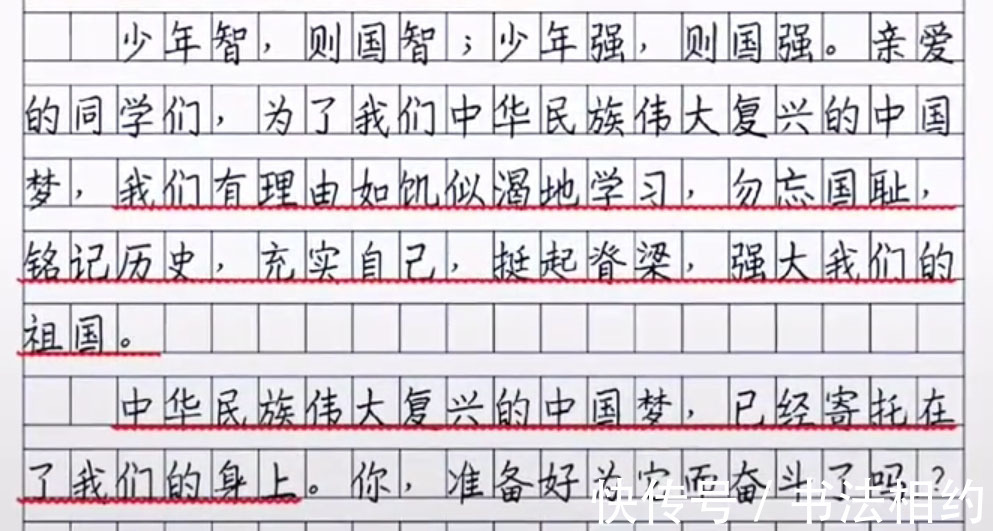 少年智，则国智；少年强，则国强。亲爱
的同学们，为了我们中华民族伟大复兴的中国
梦，我们有理由如饥似渴地学习，勿忘国耻，
铭记历史，充实自己，挺起脊梁，强大我们的
祖国。
中华民族伟大复兴的中国梦，已经寄托在
了我们的身上。你，准备好为它而奋斗了吗？
快传号 / 书法相约